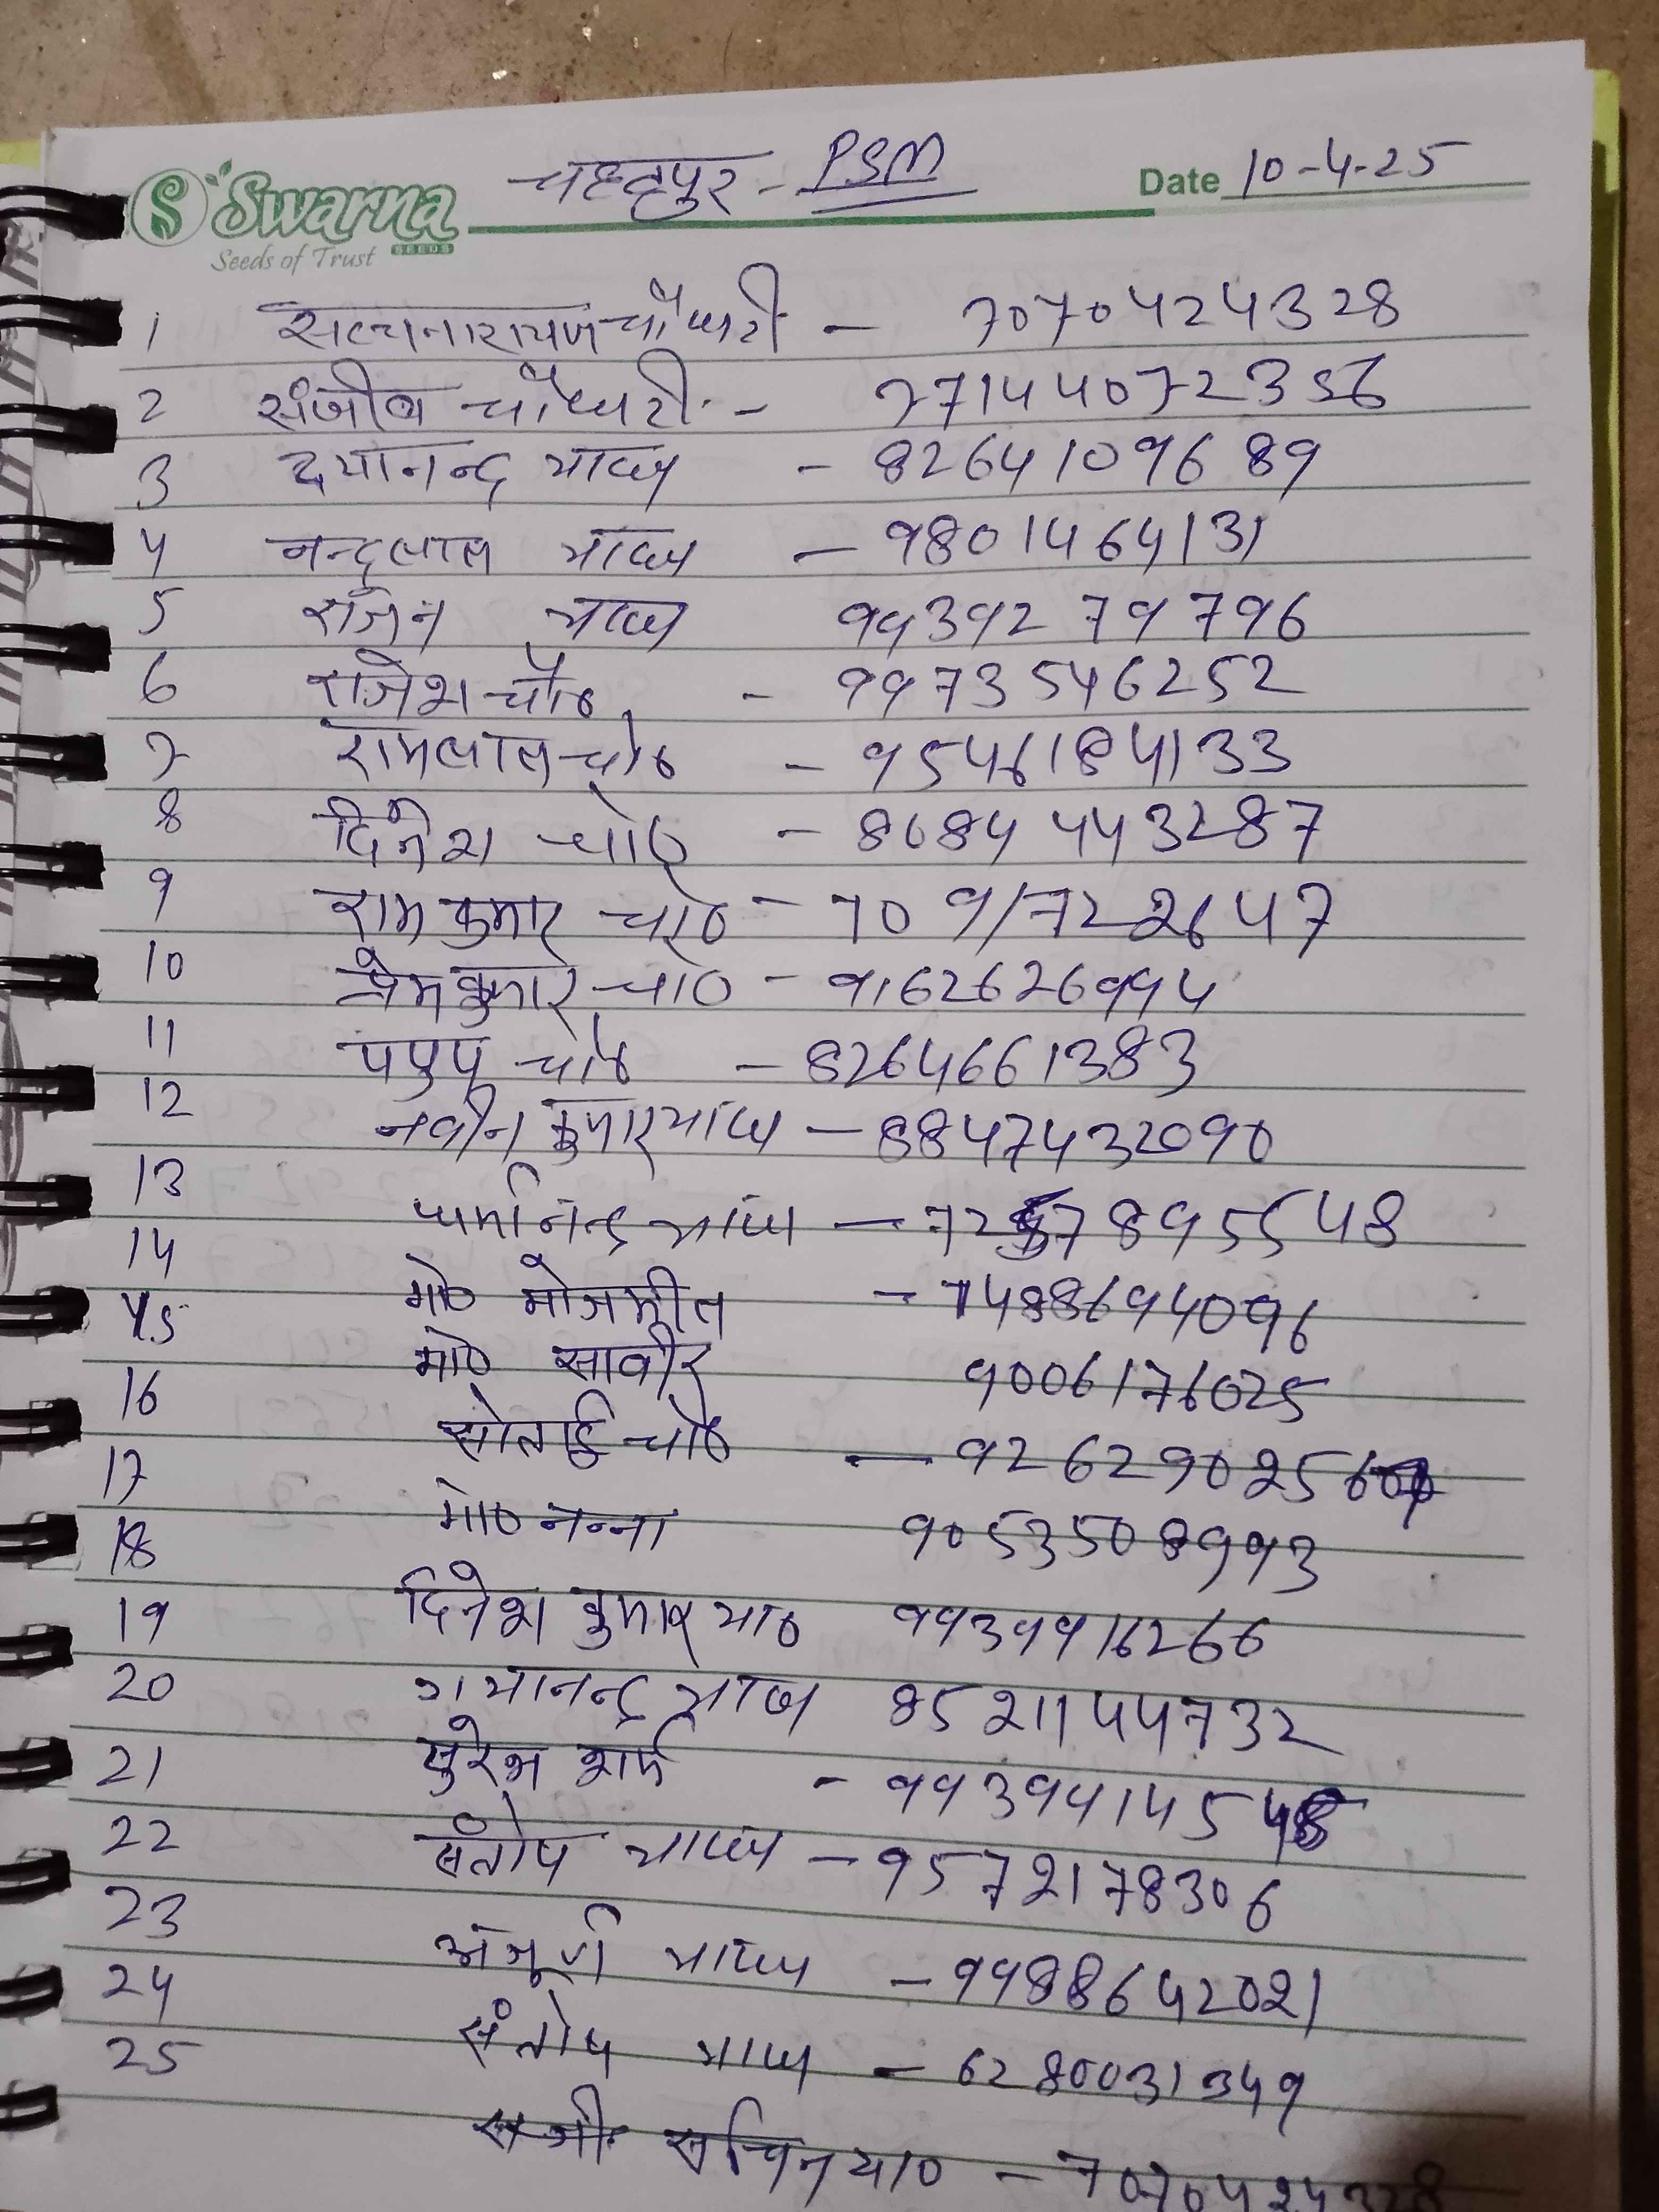 चहटपुर - PSM
Swarna
SEEDS
Seeds of Trust
Date 10-4-25
1 सत्यनारायण चौधरी - 7070424328
2 संजीव चौधरी - 77144072356
3 दयानन्द यादव - 82641099689
4 नन्दुलाल यादव - 9801464131
5 राजन यादव 9939279796
6 राजेश चौ० - 9973546252
7 रामलाल चौ० - 9546184133
8 दिनेश चौ० - 8084443287
9 राम कुमार चौ० - 7091722647
10 प्रेम कुमार चौ० - 9162626994
11 पपुपु चौ० - 82646661383
12 नवीन कुमार यादव - 8847432090
13 धर्मानन्द यादव -
14 मो० - 7488694096
15 मो० सावीर 9006176025
16 चौ० - 926290256
17 मो० नन्ना 9053508993
18 दिनेश कुमार या० 9939916266
19 गयानन्द यादव 8521144732
20 सुरेश शर्मा - 99394145
21 संतोष यादव - 9572178306
22 यादव - 9988642021
23 संतोष यादव - 6280031349
24 सचिन या० - 7070424328
25